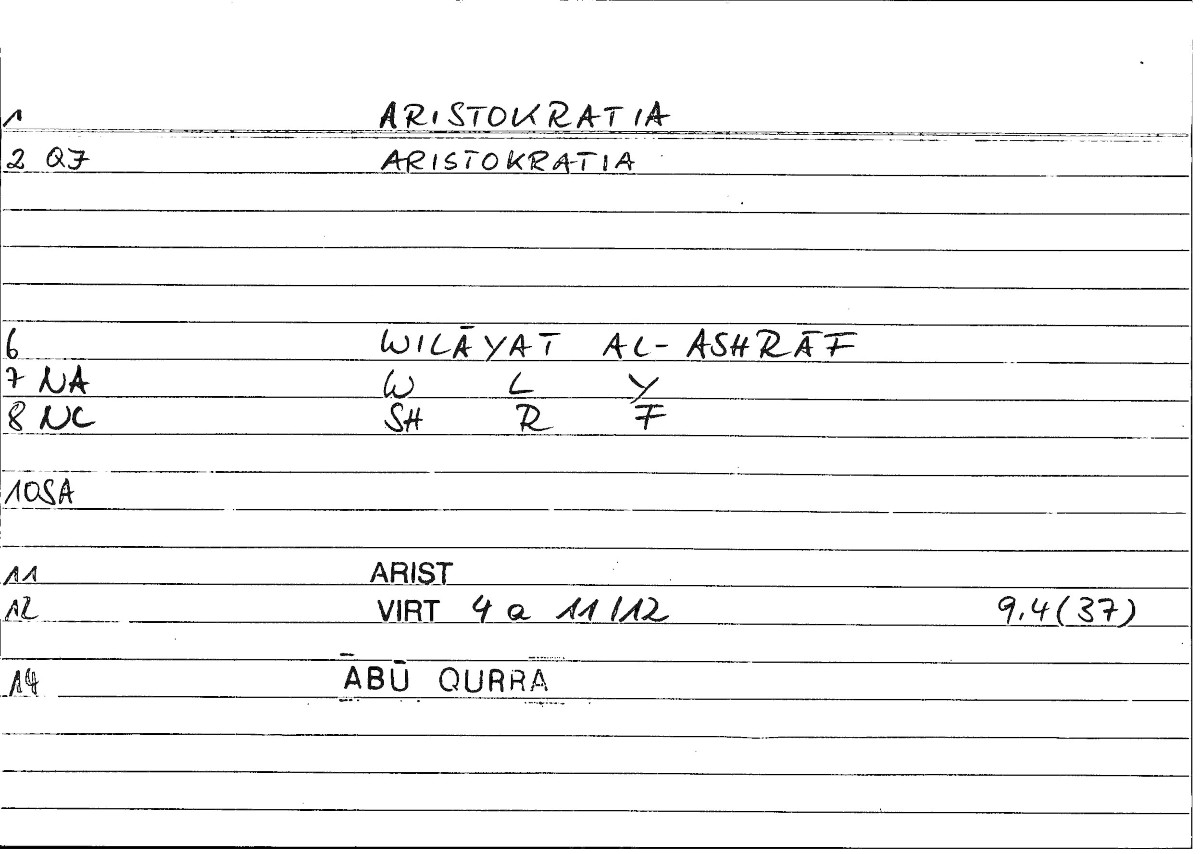 1 ARISTOKRATIA
2 Q7 ARISTOKRATIA
6 WILĀYAT AL-ASHRĀF
7 NA W L Y
8 NC SH R F
10SA
11 ARIST
12 VIRT 4 a 11/12 9,4(37)
14 ĀBŪ QURRA